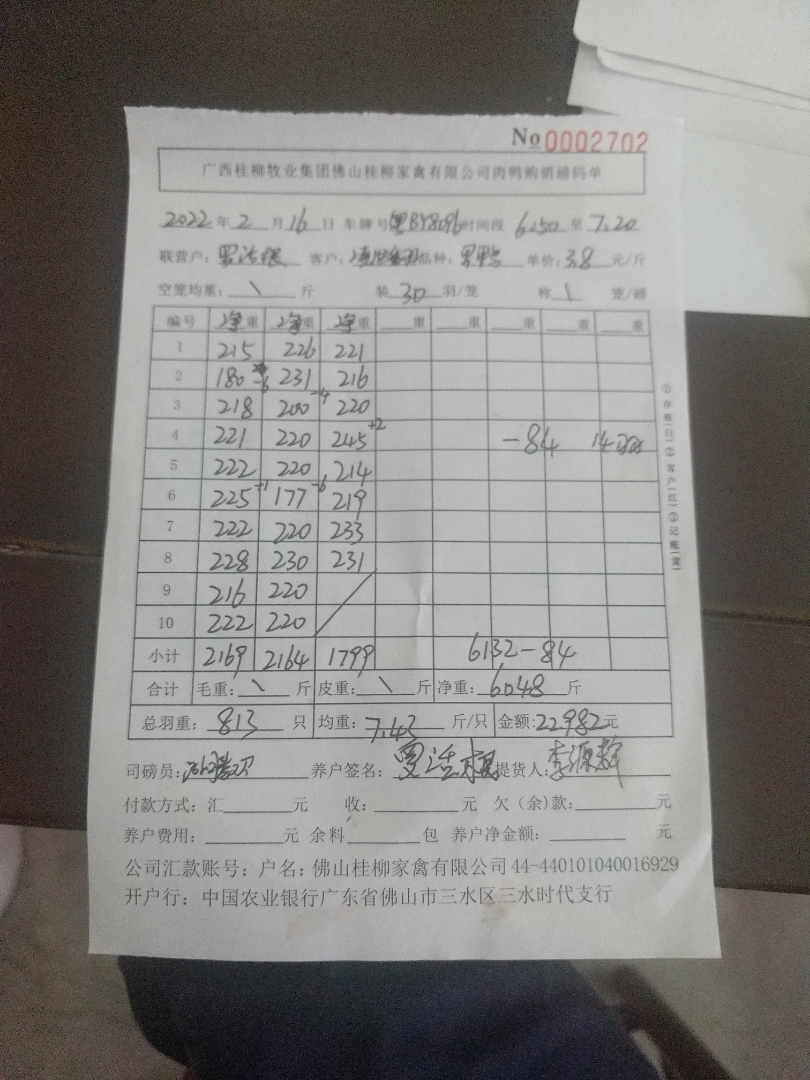 No 0002702
广西桂柳牧业集团佛山桂柳家禽有限公司肉鸭购销磅码单
2022 年 2 月 16 日 车牌号 时间段 6.50 至 7.20
联营户: 客户: 品种: 单价: 3.8 元/斤
空笼均重: \ 斤 装 30 羽/笼 称 \ 笼/磅
编号 净重 净重 净重 重 重 重 重 重
1 215 226 221
2 180 -6 231 216
3 218 200 -4 220
4 221 220 245 +2 -84 14
5 222 220 214
6 225 +1 177 -6 219
7 222 220 233
8 228 230 231
9 216 220
10 222 220
小计 2169 2164 1799 6132-84
合计 毛重: \ 斤 皮重: \ 斤 净重: 6048 斤
总羽重: 813 只 均重: 7.43 斤/只 金额: 22982 元
司磅员: 养户签名: 提货人: 李源辉
付款方式: 汇 元 收: 元 欠(余)款: 元
养户费用: 元 余料 包 养户净金额: 元
公司汇款账号: 户名: 佛山桂柳家禽有限公司 44-440101040016929
开户行: 中国农业银行广东省佛山市三水区三水时代支行
①存根(白)②客户(红)③记账(黄)